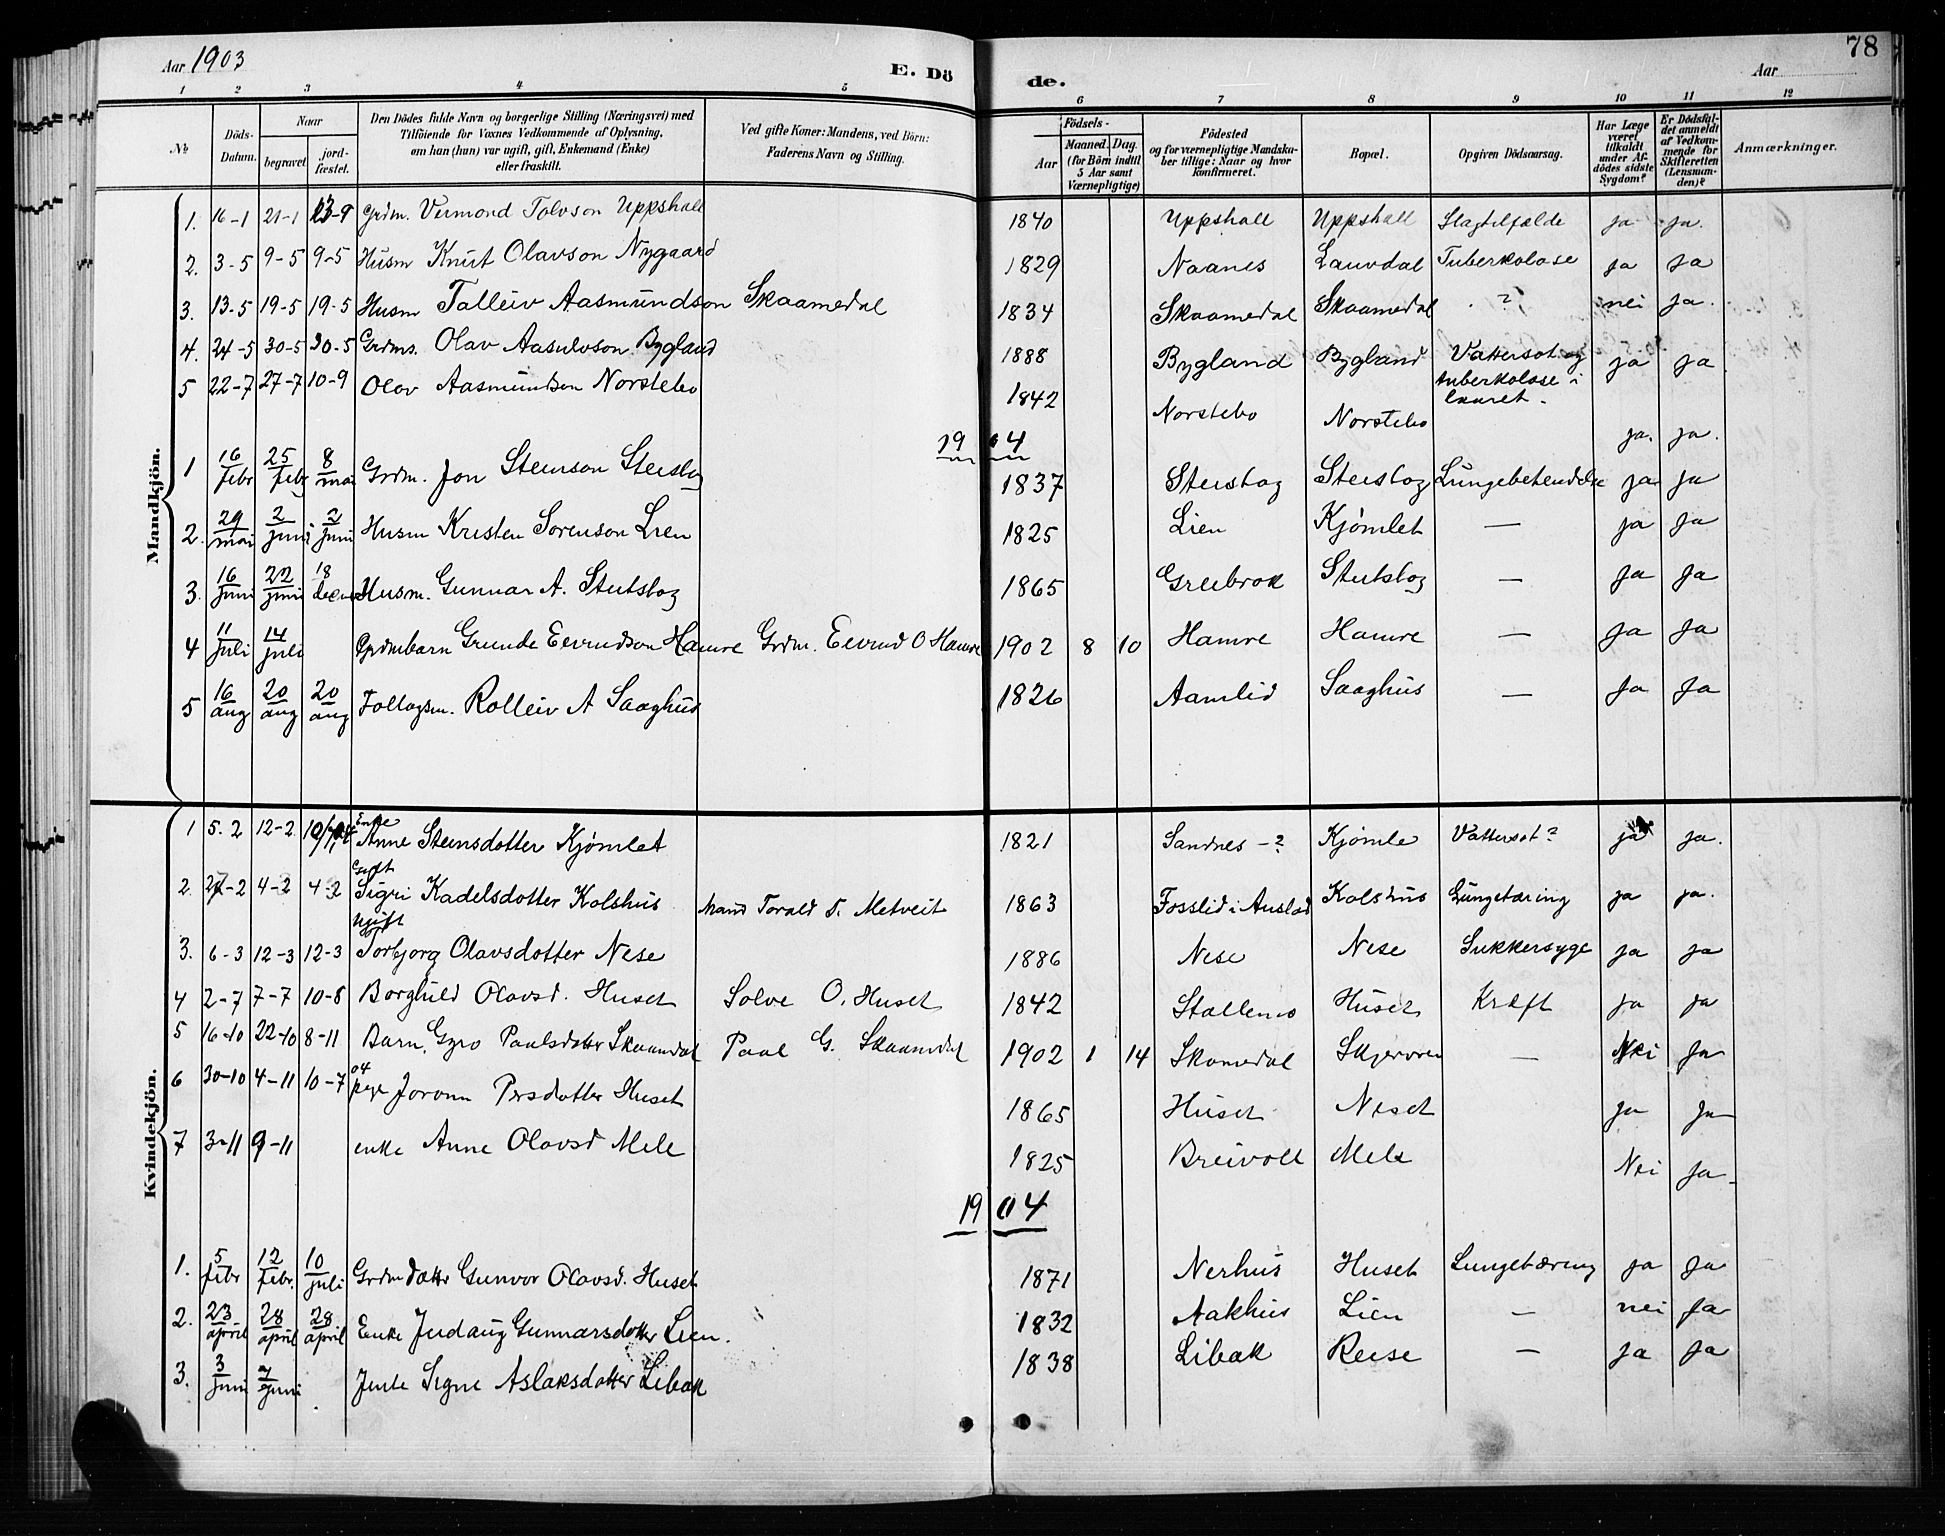 Aar 1903 E. Dö de. Aar 78
1 2 3 4 5 6 7 8 9 10 11 12
№ Döds-Datum. Naar begravet jord-fæstet. Den Dödes fulde Navn og borgerlige Stilling (Næringsvei) med Tilföiende for Voxnes Vedkommende af Oplysning, om han (hun) var ugift, gift, Enkemand (Enke) eller fraskilt. Ved gifte Koner: Mandens, ved Börn: Faderens Navn og Stilling. Födsels- Aar Maaned. Dag. (for Börn indtil 5 Aar samt Værnepligtige) Födested og for værnepligtige Mandskaber tillige: Naar og hvor konfirmeret. Bopæl. Opgiven Dödsaarsag. Har Læge været tilkaldt under Afdödes sidste Sygdom? Er Dödsfaldet anmeldt af Vedkommende for Skifteretten (Lensmanden)? Anmærkninger.
Mandkjön.
1. 16-1 21-1 13-9 Grdm. Vermond Tolvson Uppshall 1840 Uppshall Uppshall Slagtilfælde ja ja.
2. 3-5 9-5 9-5 Husm Knut Olavson Nygaard 1829 Naanes Lauvdal Tuberkolose ja ja
3. 13-5 19-5 19-5 Husm Talleiv Aasmundson Skaamedal 1834 Skaamedal Skaamedal ? nei ja.
4. 24-5 30-5 30-5 Grdms. Olav Aasulvson Bygland 1888 Bygland Bygland Vattersot og tuberkolose i laaret. ja ja
5 22-7 27-7 10-9 Olav Aasmundson Norstebo 1842 Norstebo Norstebo ja. ja.
1904
1 16 febr 25 febr 8 mai Grdm. Jon Steinson 1837 Lungebetendelse ja ja
2. 29 mai 2 juni 2 juni Husm Kristen Sorenson Lien 1825 Lien Kjømlet — ja ja
3. 16 juni 22 juni 18 Husm. Gunnar A. Stutslog 1865 Greibrok Stutslog — ja ja
4 11 juli 14 juli Grdmbarn Grunde Eivindson Hamre Grdm. Eivind O Hamre 1902 8 10 Hamre Hamre — ja ja
5 16 aug 20 aug 20 aug Follagsm. Rolleiv A Saaghus 1826 Aamlid Saaghus — ja ja
Kvindekjön.
1 5.2 12-2 Enke Anne Steinsdotter Kjømlet 1821 Sandnes -? Kjømle Vattersot? ja ja.
2. 4-2 4-2 Gift Sigri Kadelsdotter Kolshus Mand Torald T. Metveit 1863 Fosslid i Kolshus Lungetæring ja ja.
3. 6-3 12-3 12-3 ugift Torbjorg Olavsdotter Nese 1886 Nese Nese Sukkersyge ja ja
4 2-7 7-7 10-8 Borghild Olavsd. Huset Solve O. Huset 1842 Stallemo Huset Kræft ja ja
5 16-10 22-10 8-11 Barn, Gyro Paulsdotter Skaamdal Paal G. Skaamdal 1902 1 14 Skomedal — Nei ja
6 30-10 4-11 10-7 04 Joronn Persdotter Huset 1865 Huset Neset ja ja
7 3-11 9-11 enke Anne Olavsd Mele 1825 Breivoll Mele Nei ja
1904
1. 5 febr 12 febr. 10 juli Grdm datter Gunvor Olavsd. Huset 1871 Nerhus Huset Lungetæring ja ja
2. 23 april 28 april 28 april Enke Judaug Gunnarsdotter Lien. 1832 Aakhus Lien — nei ja
3. 3 juni 7 juni Jente Signe Aslaksdotter Libak 1838 Libak Reise — ja ja